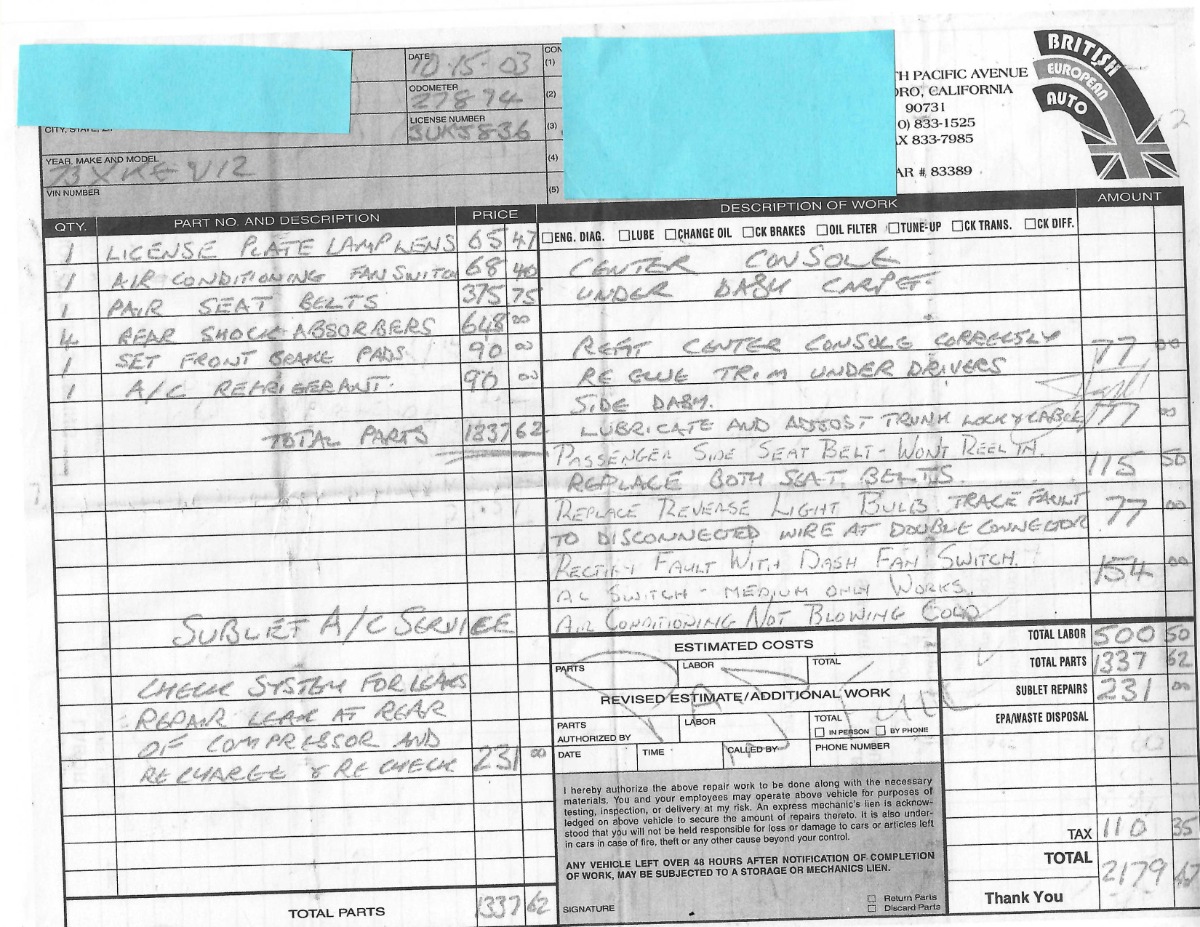 DATE
10-15-03
CON
(1)
ODOMETER
27874
(2)
CITY, STATE, ZI
LICENSE NUMBER
3UKJ836
(3)
YEAR, MAKE AND MODEL
73 XKE V12
(4)
VIN NUMBER
(5)
TH PACIFIC AVENUE
DRO, CALIFORNIA
90731
0) 833-1525
AX 833-7985
AR # 83389
BRITISH
EUROPEAN
AUTO
2
QTY. PART NO. AND DESCRIPTION PRICE
1 LICENSE PLATE LAMP LENS 65 47
1 AIR CONDITIONING FAN SWITCH 68 40
1 PAIR SEAT BELTS 375 75
4 REAR SHOCK ABSORBERS 648 00
1 SET FRONT BRAKE PADS 90 00
1 A/C REFRIGERANT. 90 00
TOTAL PARTS 1337 62
SUBLET A/C SERVICE
CHECK SYSTEM FOR LEAKS
REPAIR LEAK AT REAR
OF COMPRESSOR AND
RECHARGE & RE CHECK 231 00
TOTAL PARTS 1337 62
DESCRIPTION OF WORK AMOUNT
ENG. DIAG. LUBE CHANGE OIL CK BRAKES OIL FILTER TUNE-UP CK TRANS. CK DIFF.
CENTER CONSOLE
UNDER DASH CARPET.
REFIT CENTER CONSOLE CORRECTLY 77 00
RE GLUE TRIM UNDER DRIVERS
SIDE DASH.
LUBRICATE AND ADJUST TRUNK LOCK & CABLE 77 00
PASSENGER SIDE SEAT BELT - WONT REEL IN.
REPLACE BOTH SEAT BELTS. 115 50
REPLACE REVERSE LIGHT BULB TRACE FAULT
TO DISCONNECTED WIRE AT DOUBLE CONNECTOR 77 00
RECTIFY FAULT WITH DASH FAN SWITCH.
AC SWITCH - MEDIUM ONLY WORKS. 154 00
AIR CONDITIONING NOT BLOWING COLD
ESTIMATED COSTS
PARTS LABOR TOTAL
REVISED ESTIMATE/ADDITIONAL WORK
PARTS LABOR TOTAL
AUTHORIZED BY IN PERSON BY PHONE
DATE TIME CALLED BY PHONE NUMBER
I hereby authorize the above repair work to be done along with the necessary
materials. You and your employees may operate above vehicle for purposes of
testing, inspection, or delivery at my risk. An express mechanic's lien is acknow-
ledged on above vehicle to secure the amount of repairs thereto. It is also under-
stood that you will not be held responsible for loss or damage to cars or articles left
in cars in case of fire, theft or any other cause beyond your control.
ANY VEHICLE LEFT OVER 48 HOURS AFTER NOTIFICATION OF COMPLETION
OF WORK, MAY BE SUBJECTED TO A STORAGE OR MECHANICS LIEN.
SIGNATURE
Return Parts
Discard Parts
TOTAL LABOR 500 50
TOTAL PARTS 1337 62
SUBLET REPAIRS 231 00
EPA/WASTE DISPOSAL
TAX 110 35
TOTAL 2179 47
Thank You